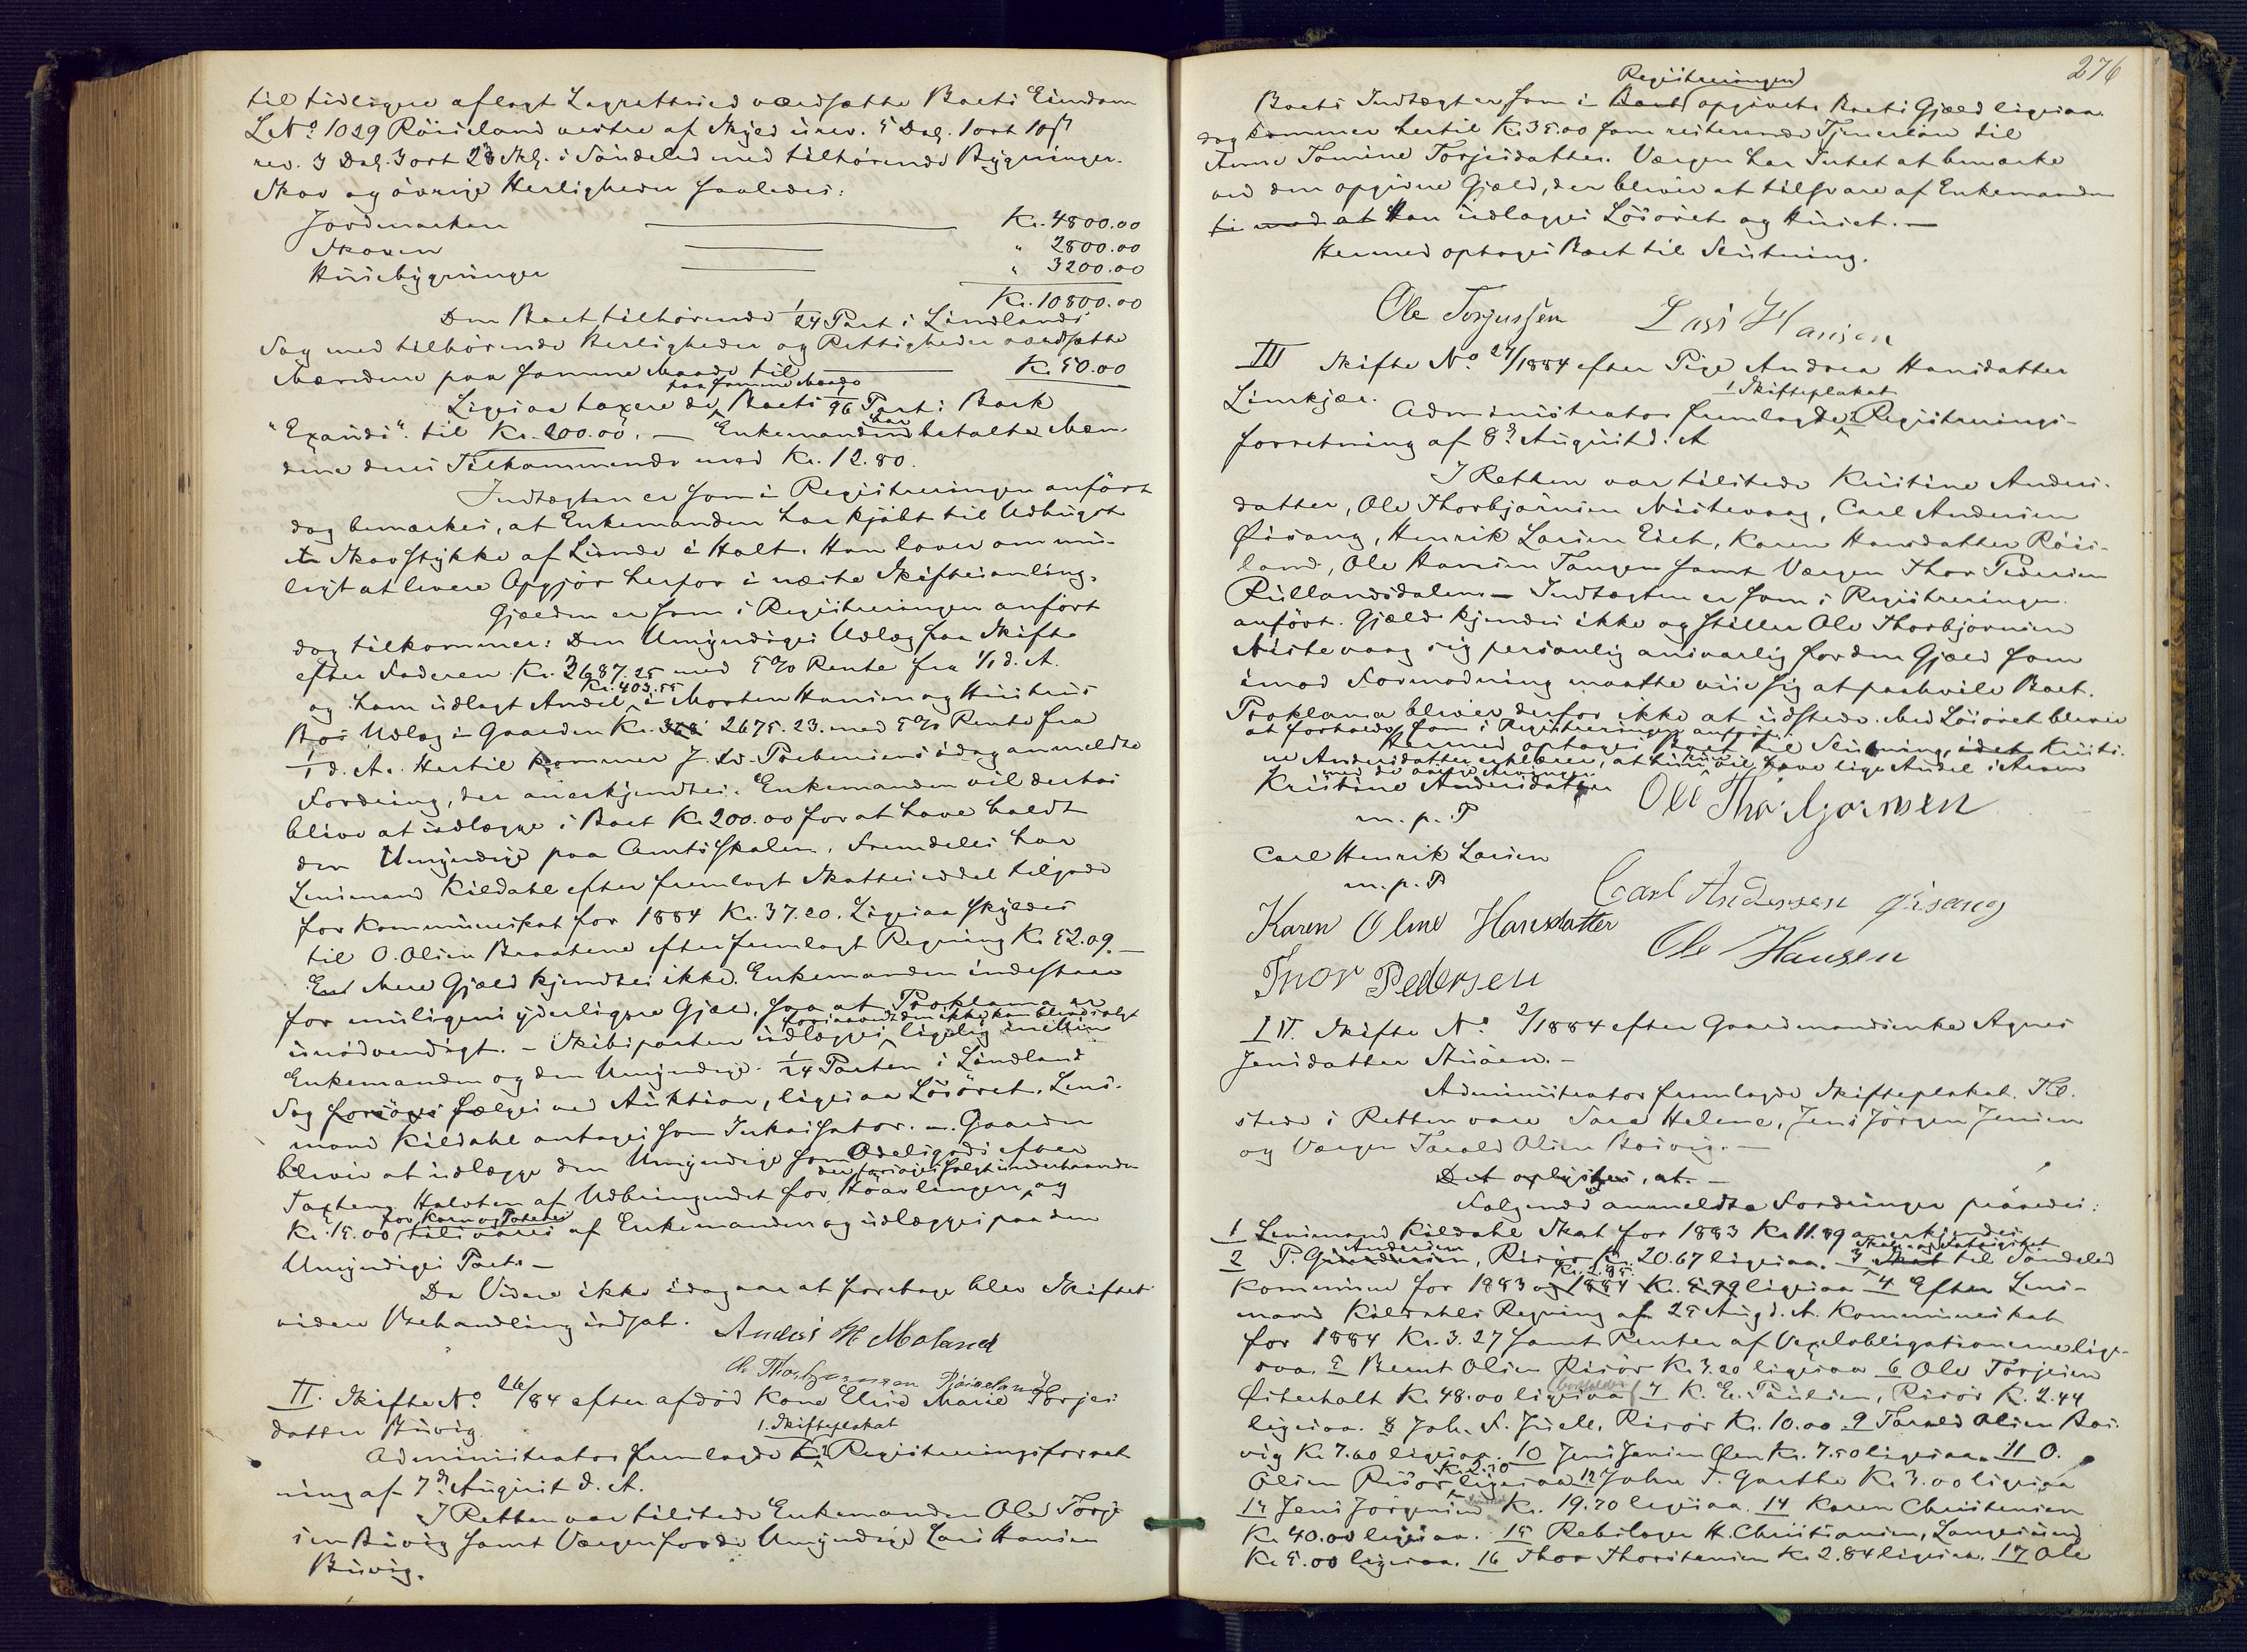 til tidligere aflagt Lagrettesed værdsætte Boets Eiendom
L No 1029 Röiseland vestre af Skyld urev. 5 Dlr. 1 ort 10 ß
rev. 3 Dlr. 3 ort 28 Skl. i Söndeled med tilhörende Bygninger.
Skov og övrige Herligheder saaledes:
Jordmarken Kr. 4800.00
Skoven " 2800.00
Husebygninger " 3200.00
Kr. 10800.00
Den Boet tilhörende 1/24 Part i Lindlands
Sag med tilhörende Herligheder og Rettigheder værdsatte
Mændene paa samme Maade til Kr. 50.00
Ligesaa taxere de paa samme Maade Boets 1/96 Part i Bark
"Exaudi" til Kr. 200.00. — Enkemanden har betalte Mæn-
dene deres Tilkommende med Kr. 12.80.
Indtægten er som i Registreringen anfört
dog bemærkes, at Enkemanden har kjöbt til Udhugst
et Skovstykke af Lunde i Holt. Han lover om mu-
ligt at levere Opgjör herfor i næste Skiftesamling.
Gjælden er som i Registreringen anfört
dog tilkommer: Den Umyndiges Udlæg fra Skifte
efter Faderen Kr. 2687.25 med 5 % Rente fra 1/1 d. A.
og ham udlagt Andel Kr. 403.55 i Morten Hansen og Hustrus
Bos Udlæg i Gaarden Kr. 2675.23. med 5 % Rente fra
1/1 d. A. Hertil kommer J. W. Prebensens idag anmeldte
Fordring, der anerkjendtes. Enkemanden vil derhos
blive at udlægge i Boet Kr. 200.00 for at have holdt
den Umyndige paa Amtsskolen. Fremdeles har
Lensmand Kildahl efter fremlagt Skatteseddel tilgode
for Kommuneskat for 1884 Kr. 37.20. Ligesaa skyldes
til O. Olsen Braatene efter fremlagt Regning Kr. 52.09. —
Mere Gjæld kjendtes ikke. Enkemanden indestaar
for muligens yderligere Gjæld, saa at Proklama er
unödvendigt. — Skibsparten udlægges forsaavidt den ikke kan blive solgt ligelig imellem
Enkemanden og den Umyndige. 1/24 Parten i Lindland
Sag forsöges sælges ved Auktion, ligesaa Lösöret. Lens-
mand Kildahl antages som Inkassator. Gaarden
bliver at udlægge den Umyndige som Odelsgods efter
Taxten. Halvten af Udbringendet for Höavlingen, der forsöges solgt underhaanden og
Kr. 15.00 for Korn og Poteter af Enkemanden og udlægges paa den
Umyndiges Part. —
Da Videre ikke idag var at foretage blev Skiftets
videre Behandling udsat. Anders H Moland
Ole Thorbjørnsen Røiseland
II. Skifte No 26/84 efter afdöd Kone Elise Marie Torjes-
datter Buvig.
Administrator fremlagde 1. Skifteplakat 2. Registreringsforret
ning af 7de August d. A.
I Retten var tilstede Enkemanden Ole Torje
sen Buvig samt Værgen for de Umyndige Lars Hansen
Buvig.
276
Boets Indtægt er som i Registreringen opgivet. Boets Gjæld ligesaa
dog kommer hertil Kr. 35.00 som resterende Tjenerlön til
Anne Tomine Torjesdatter. Værgen har Intet at bemærke
ved den opgivne Gjæld, der bliver at tilsvare af Enkemanden
ti mod at Han udlægges Lösöret og Huset. —
Hermed optages Boet til Slutning.
Ole Torjussen Lars Hansen
III Skifte No 27/1884 efter Pige Andrea Hansdatter
Limkjær.
Administrator fremlagde 1 Skifteplakat 2 Registrerings-
forretning af 8de August d. A
I Retten var tilstede Kristine Anders-
datter, Ole Thorbjörnsen Nistevaag, Carl Andersen
Øisang, Henrik Larsen Eset, Karen Hansdatter Röis-
land, Ole Hansen Tangen samt Værgen Thor Pedersen
Röllandsdalen — Indtægten er som i Registreringen
anfört. Gjæld kjendes ikke og stiller Ole Thorbjörnsen
Nistevaag sig personlig ansvarlig for den Gjæld som
imod Formodning maatte vise sig at paahvile Boet.
Proklama bliver derfor ikke at udstede. Med Lösöret bliver
at forholde som i Registreringen anfört.
Hermed optages Boet til Slutning, idet Kristi-
ne Andersdatter erklærer, at hun vil have lige Andel i Arven
med de andre Arvinger
Kristine Andersdatter Ole Thorbjørnsen
m. p. P
Carl Henrik Larsen
m. p. P Carl Andersen Øisang
Karen Oline Hansdatter Ole Hansen
Thor Pedersen
IV. Skifte No 2/1884 efter Gaardmandsenke Agnes
Jensdatter Stuöen. —
Administrator fremlagde Skifteplakat. Til-
stede i Retten vare Sara Helene, Jens Jörgen Jensen
og Værgen Tarald Olsen Bosvig. —
Det oplystes, at. —
Fölgende anmeldte Fordringer prövedes:
1 Lensmand Kildahl Skat for 1883 Kr. 11.89 anerkjendes
2 P. Andersen, Risör Kr. 20.67 ligesaa. 3 Skole og Fattigskat til Söndeled
Kommune for 1883 og 1884 Kr. 5.99 ligesaa 4 Efter Lens-
mand Kildahls Regning af 25 Aug d. A. Kommuneskat
for 1884 Kr. 3.27 samt Renter af Vexelobligationerne lige-
saa. 5 Bernt Olsen Risör Kr. 3.20 ligesaa 6 Ole Torjesen
Østerholt Kr. 48.00 ligesaa 7 K. E. Paulsen, Risör Kr. 2.44
ligesaa. 8 Joh. F. Juell, Risör Kr. 10.00 9 Tarald Olsen Bos-
vig Kr. 7.60 ligesaa. 10 Jens Jensen Øen Kr. 7.50 ligesaa. 11 O.
Olsen Risör Kr. 2.50 ligesaa 12 John T. Garthe Kr. 3.00 ligesaa
13 Jens Jorgensen Kr. 19.70 ligesaa. 14 Karen Christensen
Kr. 40.00 ligesaa. 15 Rebslager H. Christiansen, Langesund
Kr. 5.00 ligesaa. 16 Thor Thorstensen Kr. 2.84 ligesaa. 17 Ole